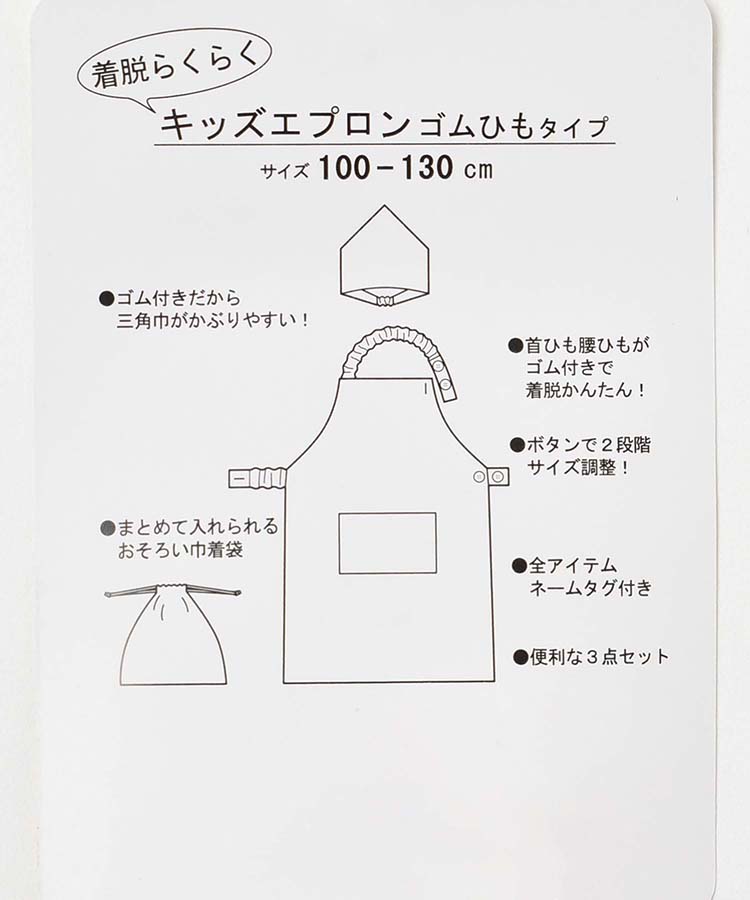 着脱らくらく
キッズエプロンゴムひもタイプ
サイズ 100－130 cm
●ゴム付きだから
三角巾がかぶりやすい！
●首ひも腰ひもが
ゴム付きで
着脱かんたん！
●ボタンで２段階
サイズ調整！
●まとめて入れられる
おそろい巾着袋
●全アイテム
ネームタグ付き
●便利な３点セット